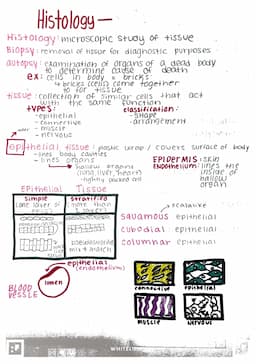 Histology—
Histology: microscopic study of tissue
Biopsy: removal of tissue for diagnostic purposes
autopsy: examination of organs of a dead body
to determine cause of death
ex: cells in body = bricks:
↳ bricks (cells) come together
to for tissue
tissue: collection of similar cells that act
with the same function
types: classification:
-epithelial -shape
-connective -arrangement
-muscle
-nervous
epithelial tissue: plastic wrap / covers surface of body
- lines body cavities
- lines organs EPIDERMIS: skin
hollow organs ENDOTHELIUM: lines the
(lung, liver, heart) inside of
- tightly packed cells hollow
organ
Epithelial Tissue
simple stratified
one layer of more than
squamous epithelial
cubodial epithelial
columnar epithelial
pseudostratified
mix + match
epithelial
(endothelium)
lumen
BLOOD
VESSLE
connective epithelial
muscle nervous